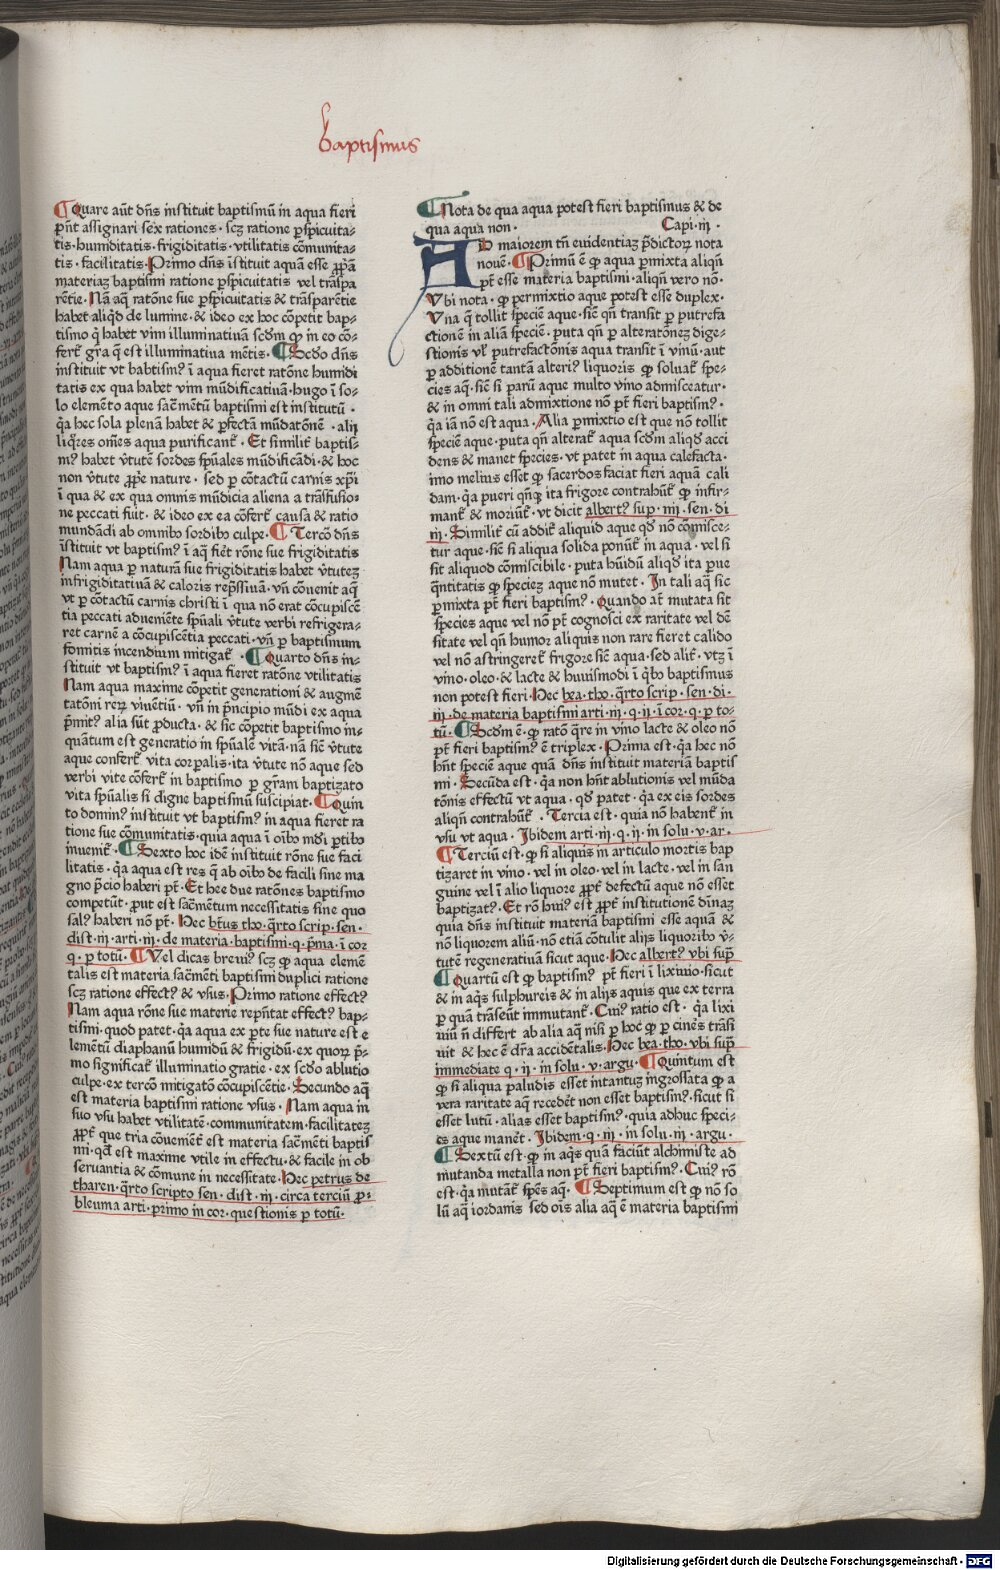 baptismus
¶Quare aūt dn̄s instituit baptismū in aqua fieri
p̄nt assignari sex rationes · scꝫ ratione ꝑspicuita-
tis·humiditatis·frigiditatis·vtilitatis cōmunita-
tis·facilitatis·Primo dn̄s īstituit aquā esse ꝓpȓā
materiaꝫ baptismi ratione ꝑspicuitatis vel trāspa
rētie·Nā aq̄ ratōne sue ꝑspicuitatis & trāsparētie
habet aliqd̕ de lumine·& ideo ex hoc cōpetit bap-
tismo q̇ habet vim illuminatiuā scd̕m ꝙ in eo cō-
fert᷑ gr̄a q̄ est illuminatiua mētis·¶Scd̕o dn̄s
instituit vt babtismꝰ ī aqua fieret ratōne humidi
tatis ex qua habet vim mūdificatiuā·hugo ī so-
lo elemēto aque sac̄mētū baptismi est institutū ·
q̇a hec sola plenā habet & ꝑfectā mūdatōnē ·alij
liq̇res om̄es aqua purificant᷑· Et similit᷑ baptis-
mꝰ habet v̄tutē sordes sp̄uales mūdificādi·& hoc
non v̄tute ꝓpȓe nature· sed ꝑ cōtactū carnis xp̄i
ī qua & ex qua omnis mūdicia aliena a trāsfusio-
ne peccati fuit· & ideo ex ea cōfert᷑ causa & ratio
mundādi ab omnibꝰ sordibꝰ culpe·¶Tercō dn̄s
īstituit vt baptismꝰ ī aq̄ fiet̄ rōne sue frigiditatis
Nam aqua ꝑ naturā sue frigiditatis habet v̄tuteꝫ
infrigiditatiuā & caloris rep̄ssiuā·vn̄ cōuenit aq̄
vt ꝑ cōtactū carnis christi ī qua nō erat cōcupiscē
tia peccati adueniēte sp̄uali v̄tute verbi refrigera-
ret carnē a cōcupiscētia peccati·vn̄ ꝑ baptismum
fomitis incendium mitigat᷑ ·¶Quarto dn̄s in-
stituit vt baptismꝰ ī aqua fieret ratōne vtilitatis
Nam aqua maxime cōpetit generationi & augmē
tatōni reꝝ viuētiū· vn̄ in p̄ncipio mūdi ex aqua
p̄mitꝰ alia sūt ꝓducta·& sic cōpetit baptismo in-
quātum est generatio in sp̄uālē vitā·nā sic̄ v̄tute
aque confert᷑ vita corꝑalis·ita v̄tute nō aque sed
verbi vite cōfert᷑ in baptismo ꝑ gr̄am baptizato
vita sp̄ualis si digne baptismū suscipiat·¶Quin
to dominꝰ instituit vt baptismꝰ in aqua fieret ra
tione sue cōmunitatis·quia aqua ī oībꝰ mdi ꝑtibꝰ
inuenit᷑·¶Sexto hoc idē instituit rōne sue faci
litatis·q̇a aqua est res q̄ ab oībꝰ de facili sine ma
gno p̄cio haberi pt̄·Et hee due ratōnes baptismo
competūt·ꝓut est sac̄mētum necessitatis sine quo
salꝰ haberi nō pt̄·Hec bt̄us tho·q̇rto scrip·sen·
dist·iij·arti·iij·de materia·baptismi·q·p̄ma·ī cor
q·ꝑ totū·¶Vel dicas breuiꝰ scꝫ ꝙ aqua elemē
talis est materia sac̄mēti baptismi duplici ratione
scꝫ ratione effectꝰ & vsus·Primo ratione effectꝰ
Nam aqua rōne sue materie rep̄ntat effectꝰ bap-
tismi·quod patet·q̇a aqua ex ꝑte sue nature est e
lemētū diaphanū humidū & frigidū·ex quoꝝ p̄-
mo significat᷑ illuminatio gratie·ex scd̕o ablutio
culpe·ex tercō mitigatō cōcupiscētie·Secundo aq̄
est materia baptismi ratione vsus· Nam aqua in
suo vsu habet vtilitatē·communitatem·facilitateꝫ
ꝓpt᷑ que tria cōuenient᷑ est materia sac̄mēti baptis
mi·qd̕ est maxime vtile in effectu·& facile in ob
seruantia & cōmune in necessitate·Hec petrus de
tharen·q̇rto scripto sen·dist·iij·circa terciū ꝓ-
bleuma arti·primo in cor·questionis ꝑ totū·
¶Nota de qua aqua potest fieri baptismus & de
qua aqua non· Capi·iij·
AD maiorem tn̄ euidentiaꝫ p̄dictoꝝ nota
nouē·¶Primū ē ꝙ aqua ꝑmixta aliqn̄
pt̄ esse materia baptismi·aliqn̄ vero nō·
Vbi nota·ꝙ permixtio aque potest esse duplex·
Vna q̄ tollit speciē aque·sic̄ qn̄ transit ꝑ putrefa
ctionē in aliā speciē·puta qn̄ ꝑ alteratōneꝫ dige-
stionis vl᷑ putrefactōnis aqua transit ī vinū·aut
ꝑ additionē tantā alteriꝰ liquoris ꝙ soluat᷑ spe-
cies aq̄·sic̄ si parū aque multo vino admisceatur·
& in omni tali admixtione nō pt̄ fieri baptismꝰ·
q̇a iā nō est aqua·Alia ꝑmixtio est que nō tollit
speciē aque·puta qn̄ alterat᷑ aqua scd̕m aliqd̕ acci
dens & manet species·vt patet in aqua calefacta·
imo melius esset ꝙ sacerdos faciat fieri aquā cali
dam·q̇a pueri qn̄qꝫ ita frigore contrahūt᷑ ꝙ infir-
mant᷑ & moriūt᷑·vt dicit albertꝰ suꝑ·iiij·sen·di
iij·Similit᷑ cū addit᷑ aliquid aque qd̕ nō cōmisce-
tur aque·sic̄ si aliqua solida ponūt᷑ in aqua·vel si
sit aliquod cōmiscibile·puta hūidū aliqd̕ ita ꝑue
q̄ntitatis ꝙ specieꝫ aque nō mutet·In tali aq̄ sic
ꝑmixta pt̄ fieri baptismꝰ·Quando at̄ mutata sit
species aque vel nō pt̄ cognosci ex raritate vel dē
sitate vel qn̄ humor aliquis non rare fieret calido
vel nō astringeret᷑ frigore sic̄ aqua·sed alit᷑·vtꝫ ī
vino·oleo·& lacte & huiusmodi ī q̇bꝰ baptismus
non potest fieri·Hec bea·tho·q̇rto scrip·sen·di·
iij·de materia baptismi arti·iij·q·ij·ī cor·q·ꝑ to-
tū·¶Scd̕m ē·ꝙ ratō q̇re in vino lacte & oleo nō
pt̄ fieri baptismꝰ ē triplex·Prima est·q̇a hec nō
hn̄t speciē aque quā dn̄s instituit materiā baptis
mi·Secūda est·q̇a non hn̄t ablutionis vel mūda
tōnis effectū vt aqua·qd̕ patet·q̇a ex eis sordes
aliqn̄ contrahūt᷑·Tercia est·quia nō habent᷑ in
vsu vt aqua·Ibidem arti·iij·q·ij·in solu·v·ar·
¶Terciū est·ꝙ si aliquis in articulo mortis bap
tizaret in vino·vel in oleo·vel in lacte·vel in san
guine vel ī alio liquore ꝓpt᷑ defectū aque nō esset
baptizatꝰ·Et rō huiꝰ est ꝓpt᷑ institutionē diuinaꝫ
quia dn̄s instituit materiā baptismi esse aquā &
nō liquorem aliū·nō etiā cōtulit alijs liquoribꝰ v̄-
tutē regeneratiuā sicut aque·Hec albertꝰ vbi sup̄
¶Quartū est ꝙ baptismꝰ pt̄ fieri ī lixiuio·sicut
& in aq̇s sulphureis & in alijs aquis que ex terra
ꝑ quā trāseūt immutant᷑·Cuiꝰ ratio est·q̇a lixi
uiū n̄ differt ab alia aq̄ nisi ꝑ hoc ꝙ ꝑ cineres trāsi
uit & hec ē dr̄a accidētalis·Hec bea·tho·vbi sup̄
immediate q·ij·in solu·v·argu·¶Quintum est
ꝙ si aliqua paludis esset intantuꝫ ingrossata ꝙ a
vera raritate aq̄ recedet̄ non esset baptismꝰ·sicut si
esset lutū·alias esset baptismꝰ·quia adhuc speci-
es aque manet̄·Ibidem·q·iij·in solu·iij·argu·
¶Sextū est·ꝙ in aq̇s quā faciūt alchimiste ad
mutanda metalla non pt̄ fieri baptismꝰ·Cuiꝰ rō
est·q̇a mutāt᷑ spēs aq̄·¶Septimum est ꝙ nō so
lū aq̄ iordanis sed oīs alia aq̄ ē materia baptismi
Digitalisierung gefördert durch die Deutsche Forschungsgemeinschaft - DFG